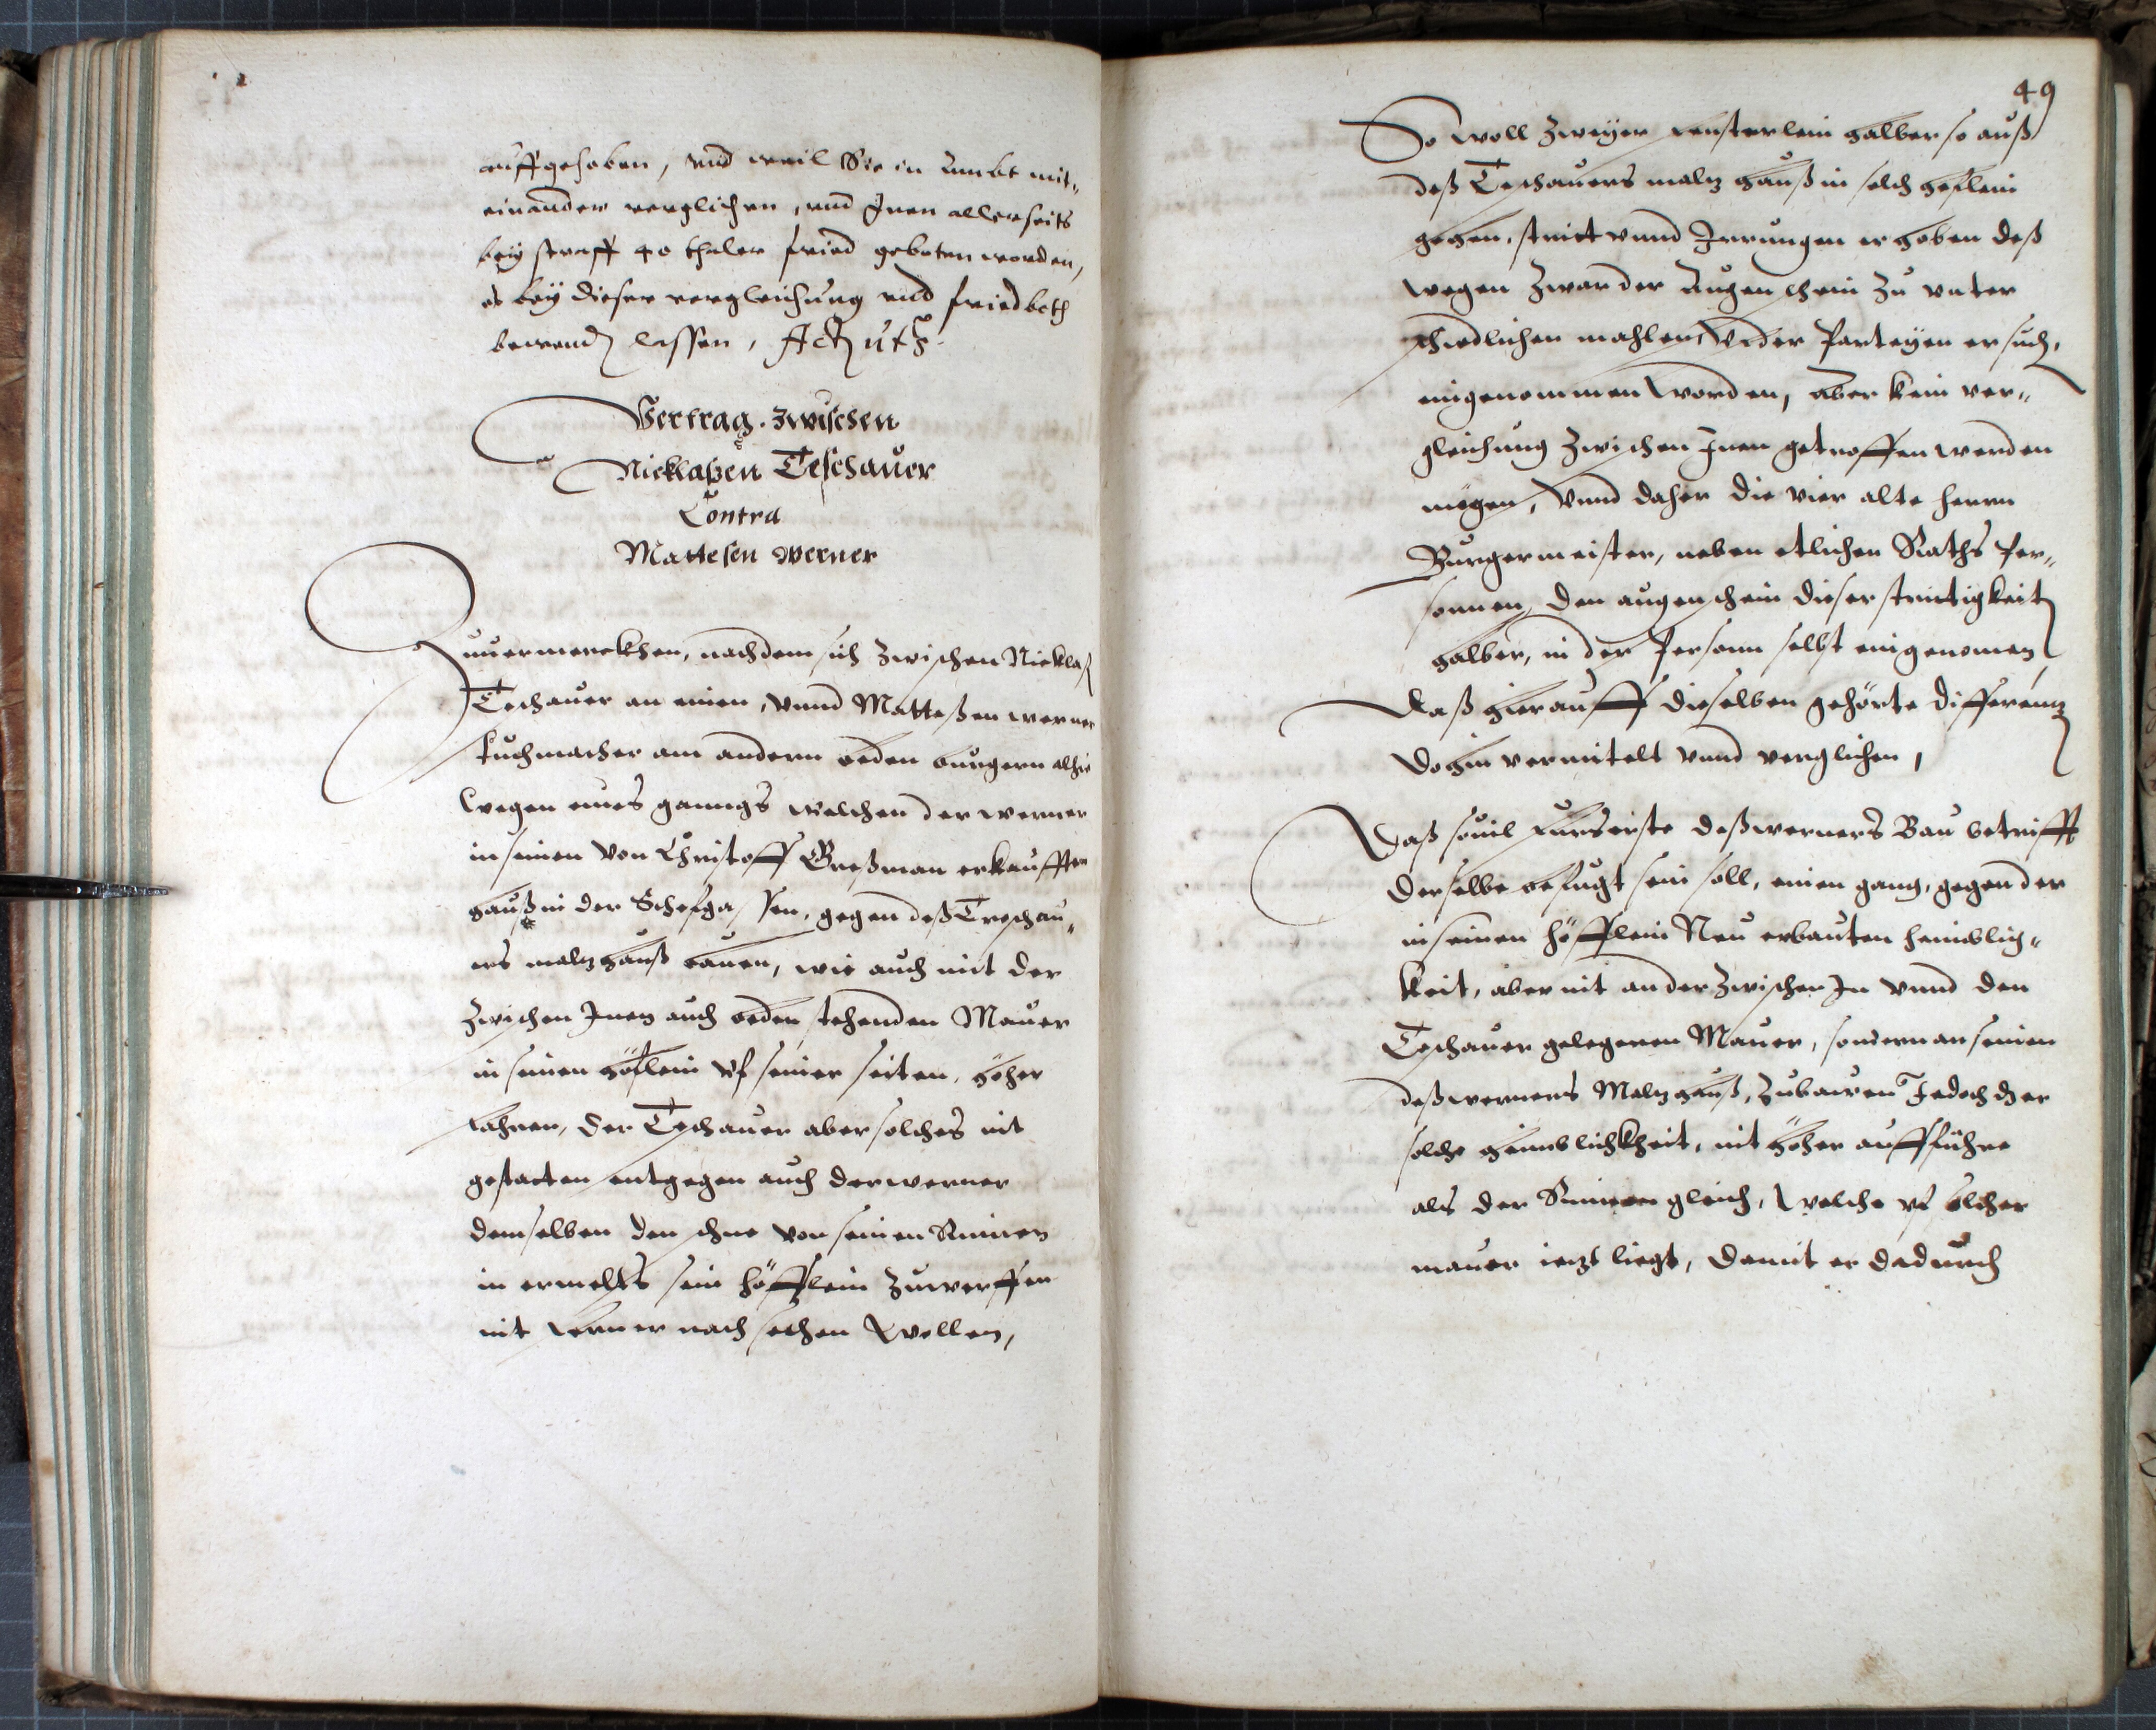 auffgehoben, vnd weil Sie in Ambt mit„
einander verglichen, vnd Jnen allerseits
bey straff 40 thaler fried geboten worden,
es bey dieser vergleichung vnd friedboth
bewend lassen,
Vertrag zwischen
Nicklaßen Teschauer
Contra
Mattesen Werner
Zuuermerckhen, nachdem sich zwischen Nicklaß
Teschauer an einen, vnnd Matteßen Werner
tuchmacher am andern beden burgern alhie
wegen eines ganngs welchen der Werner
in seinen von Christoff Großman erkaufften
hauß in der gassen, gegen deß Teschau„
ers maltzhauß bauen, wie auch mit der
zwischen Jnen auch beden stehenden Mauer
in seinen höflein vf seiner seiten, höher
fahren, der Teschauer aber solches nit
gestatten entgegen auch der Werner
demselben den schne von seinen Rinnen
in ermelts sein höfflein zuwerffen
nit ferner nach sehen wollen,
49
So woll zweyer fensterlein halber so auß
deß Teschauers maltz hauß in solch höflein
gehen, stritt vnnd Jrrungen erhoben deß
wegen zwar der Augenschein zu vnter
schiedlichen mahlen vf der Parteyen ersuch,
eingenommen worden, aber kein ver„
gleichung zwischen Jnen getroffen werden
mögen, vnnd daher die vier alte herrn
Burgermeister, neben etlichen Raths Per„
sonnen, den augenschein dieser strittigkeit
halber, in der Person selbst eingenomen
Daß hierauff dieselben gehörte differentz
dahin vermitelt vnnd verglichen,
Daß souil fürs erste deß Werners Bau betrifft
derselbe befugt sein soll, einen gang, gegen der
in seinen höfflein Neu erbauten heimblig„
keit, aber nit an der zwischen Jm vnnd den
Teschauer gelegenen Mauer, sondern an seinen
deß Werners Maltzhauß, zubauen Jedoch das er
solche heimblichkheit, nit höher aufführe
als der Rinnen gleich, welche vf solcher
mauer ietzt liegt, damit er dadurch